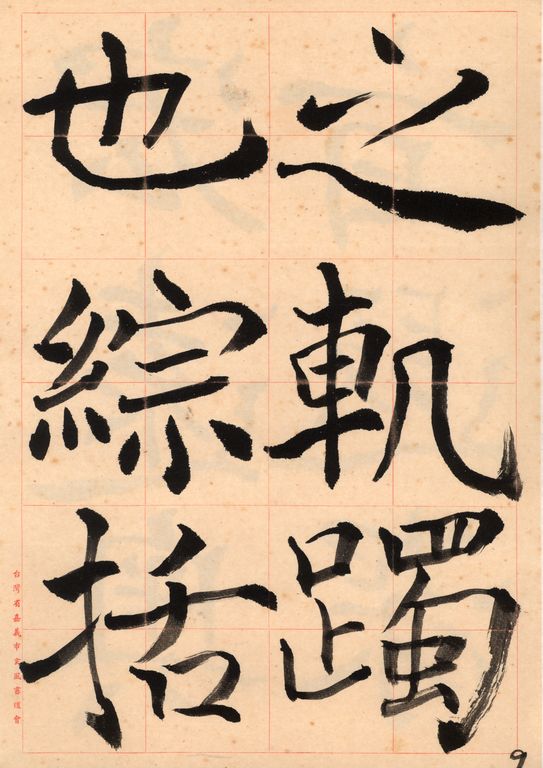 之軌躅
也綜括
台灣省嘉義市玄風書道會
9